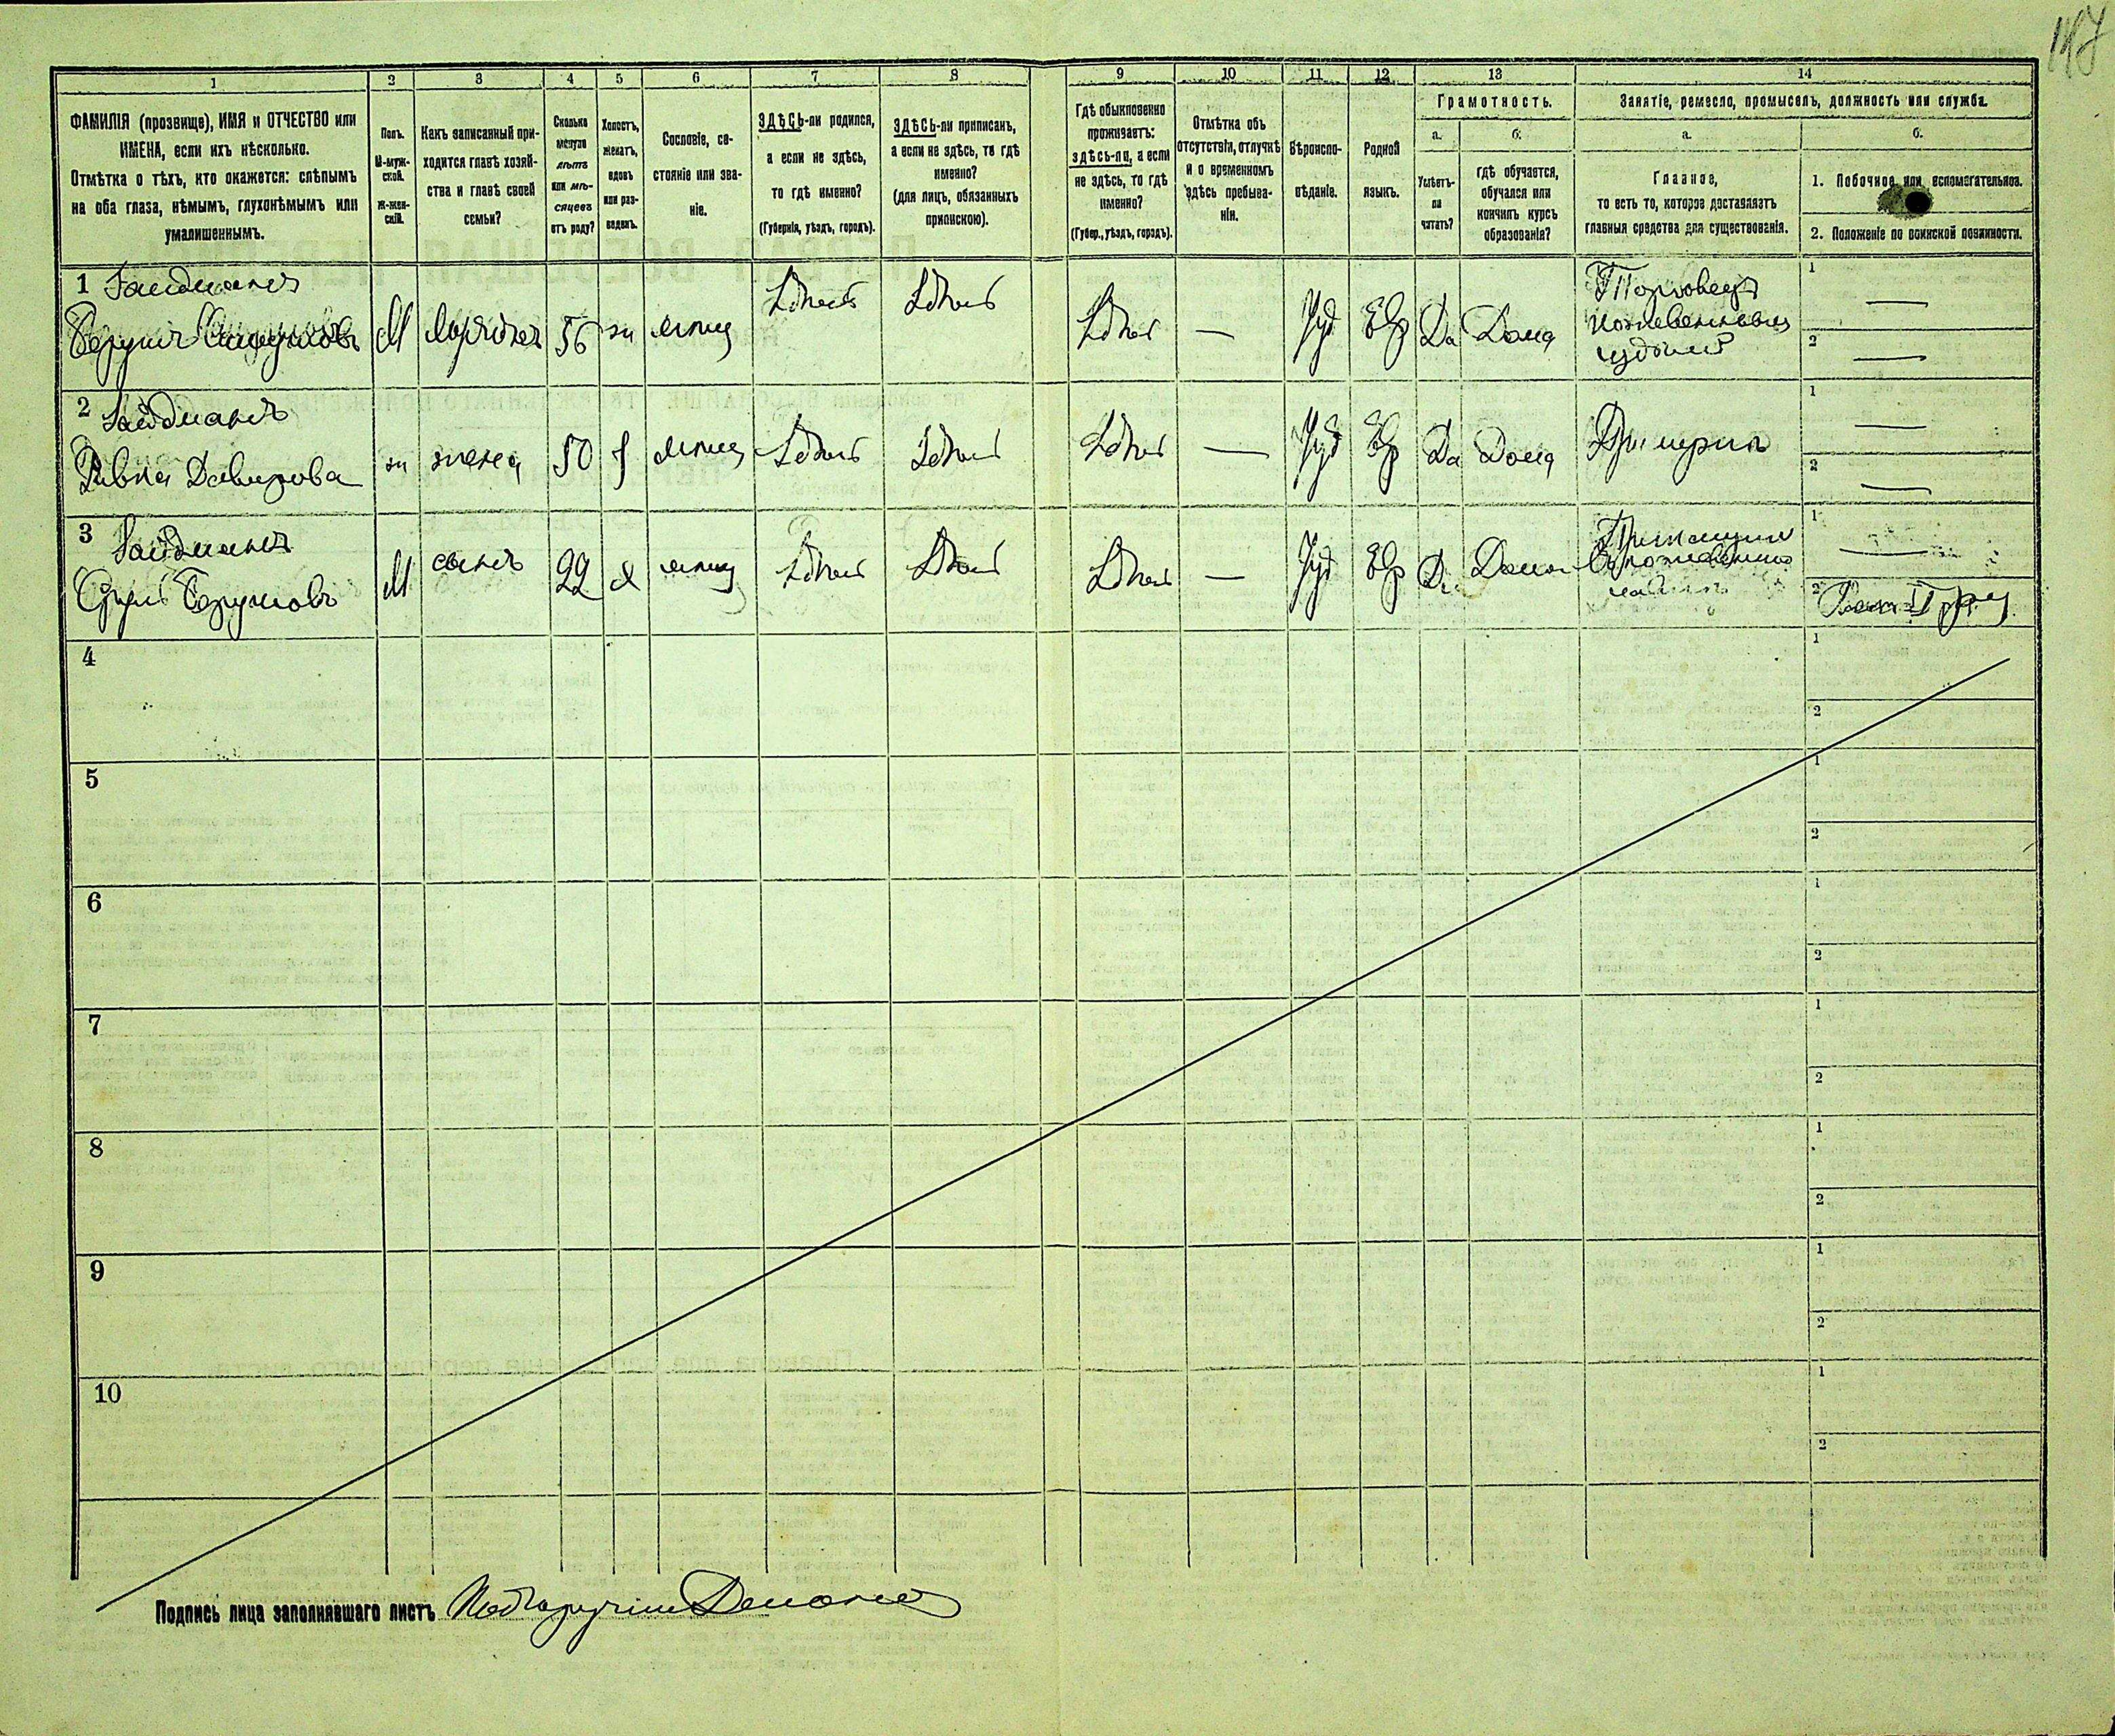 147
1 2 3 4 5 6 7 8 9 10 11 12 13 14
ФАМИЛІЯ (прозвище), ИМЯ и ОТЧЕСТВО или
ИМЕНА, если ихъ нѣсколько.
Отмѣтка о тѣхъ, кто окажется: слѣпымъ
на оба глаза, нѣмымъ, глухонѣмымъ или
умалишеннымъ.
Полъ.
М-муж-
ской.
Ж-жен-
скій.
Какъ записанный при-
ходится главѣ хозяй-
ства и главѣ своей
семьи?
Сколько
минуло
лѣтъ
или мѣ-
сяцевъ
отъ роду?
Холостъ,
женатъ,
вдовъ
или раз-
веденъ.
Сословіе, со-
стояніе или зва-
ніе.
ЗДѢСЬ-ли родился,
а если не здѣсь,
то гдѣ именно?
(Губернія, уѣздъ, городъ).
ЗДѢСЬ-ли приписанъ,
а если не здѣсь, то гдѣ
именно?
(для лицъ, обязанныхъ
припискою).
Гдѣ обыкновенно
проживаетъ:
здѣсь-ли, а если
не здѣсь, то гдѣ
именно?
(Губер., уѣздъ, городъ).
Отмѣтка объ
отсутствіи, отлучкѣ
и о временномъ
здѣсь пребыва-
ніи.
Вѣроиспо-
вѣданіе.
Родной
языкъ.
Грамотность.
а.
Умѣетъ-
ли
читать?
б.
гдѣ обучается,
обучался или
кончилъ курсъ
образованія?
Занятіе, ремесло, промыселъ, должность или служба.
а.
Главное,
то есть то, которое доставляетъ
главныя средства для существованія.
б.
1. Побочное или вспомогательное.
2. Положеніе по воинской повинности.
1 Зайдманъ
М 56 жн мѣщ Здѣсь Здѣсь Здѣсь — Іуд Евр Да Дома
Торговецъ
кожевенными
издѣлій
1 —
2 —
2 Зайдманъ
Ривка Давидова ж жена 50 з мѣщ Здѣсь Здѣсь Здѣсь — Іуд Евр Да Дома При мужѣ
1 —
2 —
3 Зайдманъ
Сруль Берумовъ М сынъ 22 х мѣщ Здѣсь Здѣсь Здѣсь — Іуд Евр Да Дома
1 —
2
4 1 2
5 1 2
6 1 2
7 1 2
8 1 2
9 1 2
10 1 2
Подпись лица заполнявшаго листъ